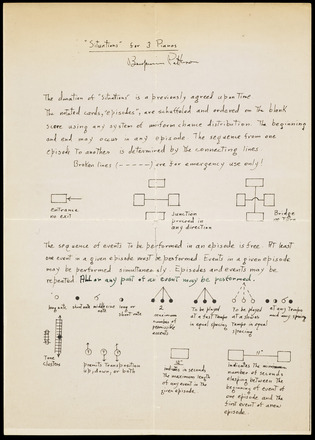 "Situations" for 3 Pianos
Benjamin Patterson
The duration of "Situations" is a previously agreed upon time
The notated cards, "episodes", are schuffeled and ordered on the blank
score using any system of uniform chance distribution. The beginning
and end may occur in any episode. The sequence from one
episode to another is determined by the connecting lines
Broken lines (------) are for emergency use only!
entrance
or exit
Junction
proceed in
any direction
Bridge
The sequence of events to be performed in an episode is free. At least
one event in a given episode must be performed. Events in a given episode
may be performed simultaneously. Episodes and events may be
repeated. All or any part of an event may be performed.
long note
short note
long or
short note
2
number of
permissible
events
To be played
at a fast tempo
in equal spacing
To be played
at a slower
tempo in equal
spacing
at any tempo
and any spacing
Tone
Clusters
permits Transposition
up, down, or both
12"
indicates in seconds
the maximum length
of any event in the
given episode.
11"
indicates the
number of seconds
elapsing between the
beginning of event of
one episode and the
first event of a new
episode.